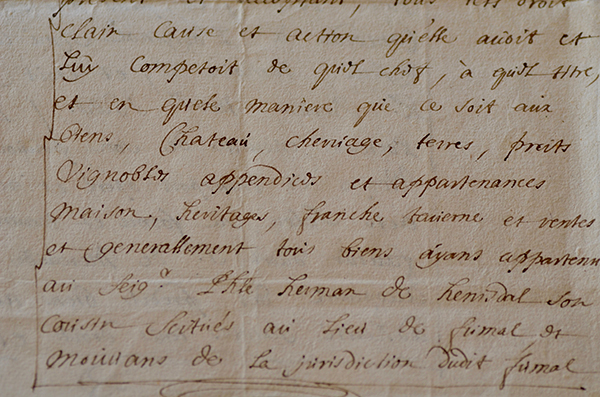 present et acceptant, tous tels droit
clair Cause et action qu'elle auoit et
Luÿ Competoit de quel chef, à quel titre,
et en quele maniere que ce soit aux
biens, Chateau, cheruage, terres, preits
Vignobles appendices et appartenances
maison, heritages, franche tauerne et rentes
et generallement tous biens aÿans appartenu
au Seig.r Phle herman de henisdal son
Cousin Scitués au Lieu de fumal et
mouuans de La jurisdiction dudit fumal